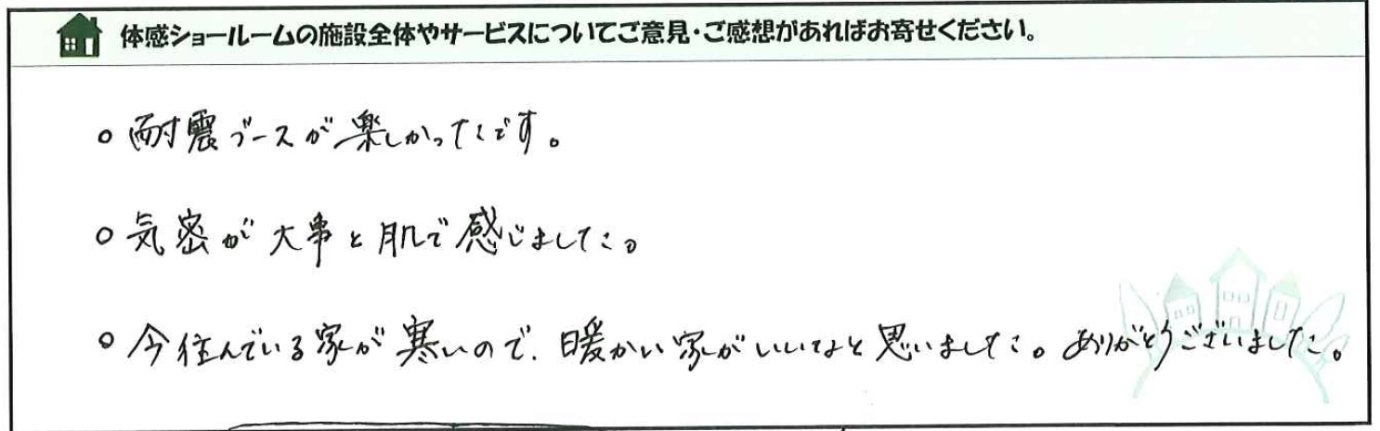 体感ショールームの施設全体やサービスについてご意見・ご感想があればお寄せください。
○ 耐震ブースが楽しかったです。
○ 気密が大事と肌で感じました。
○ 今住んでいる家が寒いので、暖かい家がいいなと思いました。ありがとうございました。